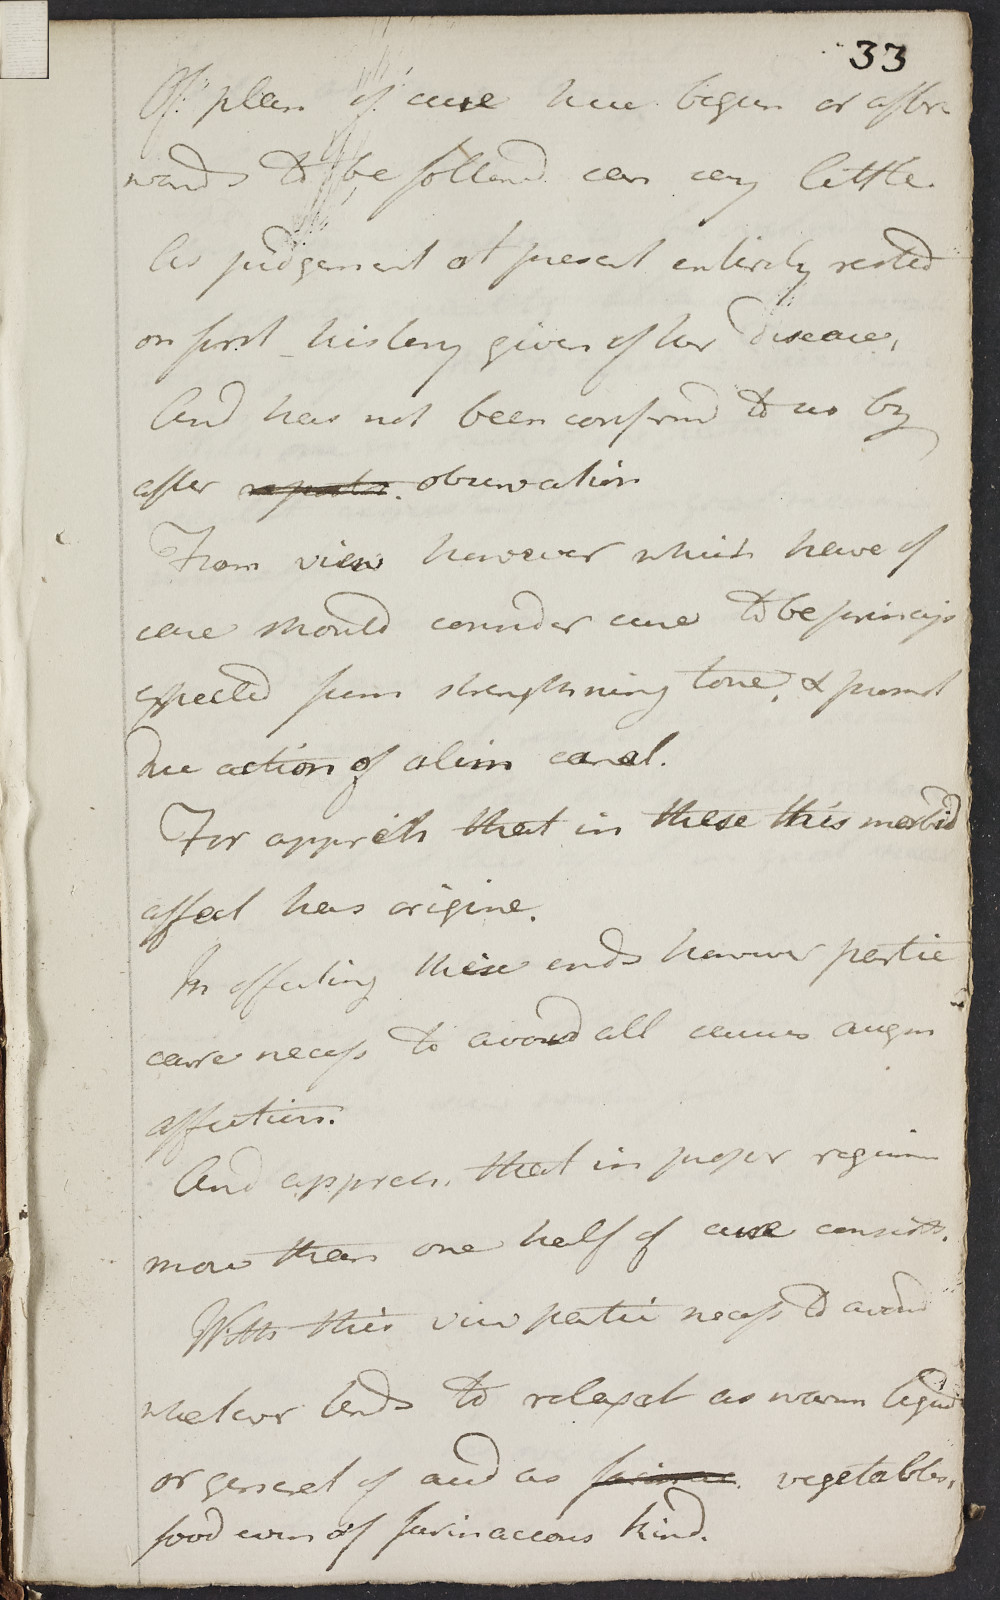 33
Of plan of cure have begun or after
wards to be followd can say little.
As judgement at present entirely rested
on first history given of her disease,
And has not been confirmd to us by
after reports. observation
From view however which have of
case should consider cure to be principy
expected from strengthning tone, & promot
due action of alim canal.
For appreh that in these this morbid
affect has origine.
In effecting these ends however partic
care necess to avoid all causes augm
affection.
And appreh. that in proper regimen
more than one half of cure consists.
With this view partic necess to avoid
whatever tends to relaxat as warm liquid
or general of acid as vegetables,
food even of farinaceous kind.